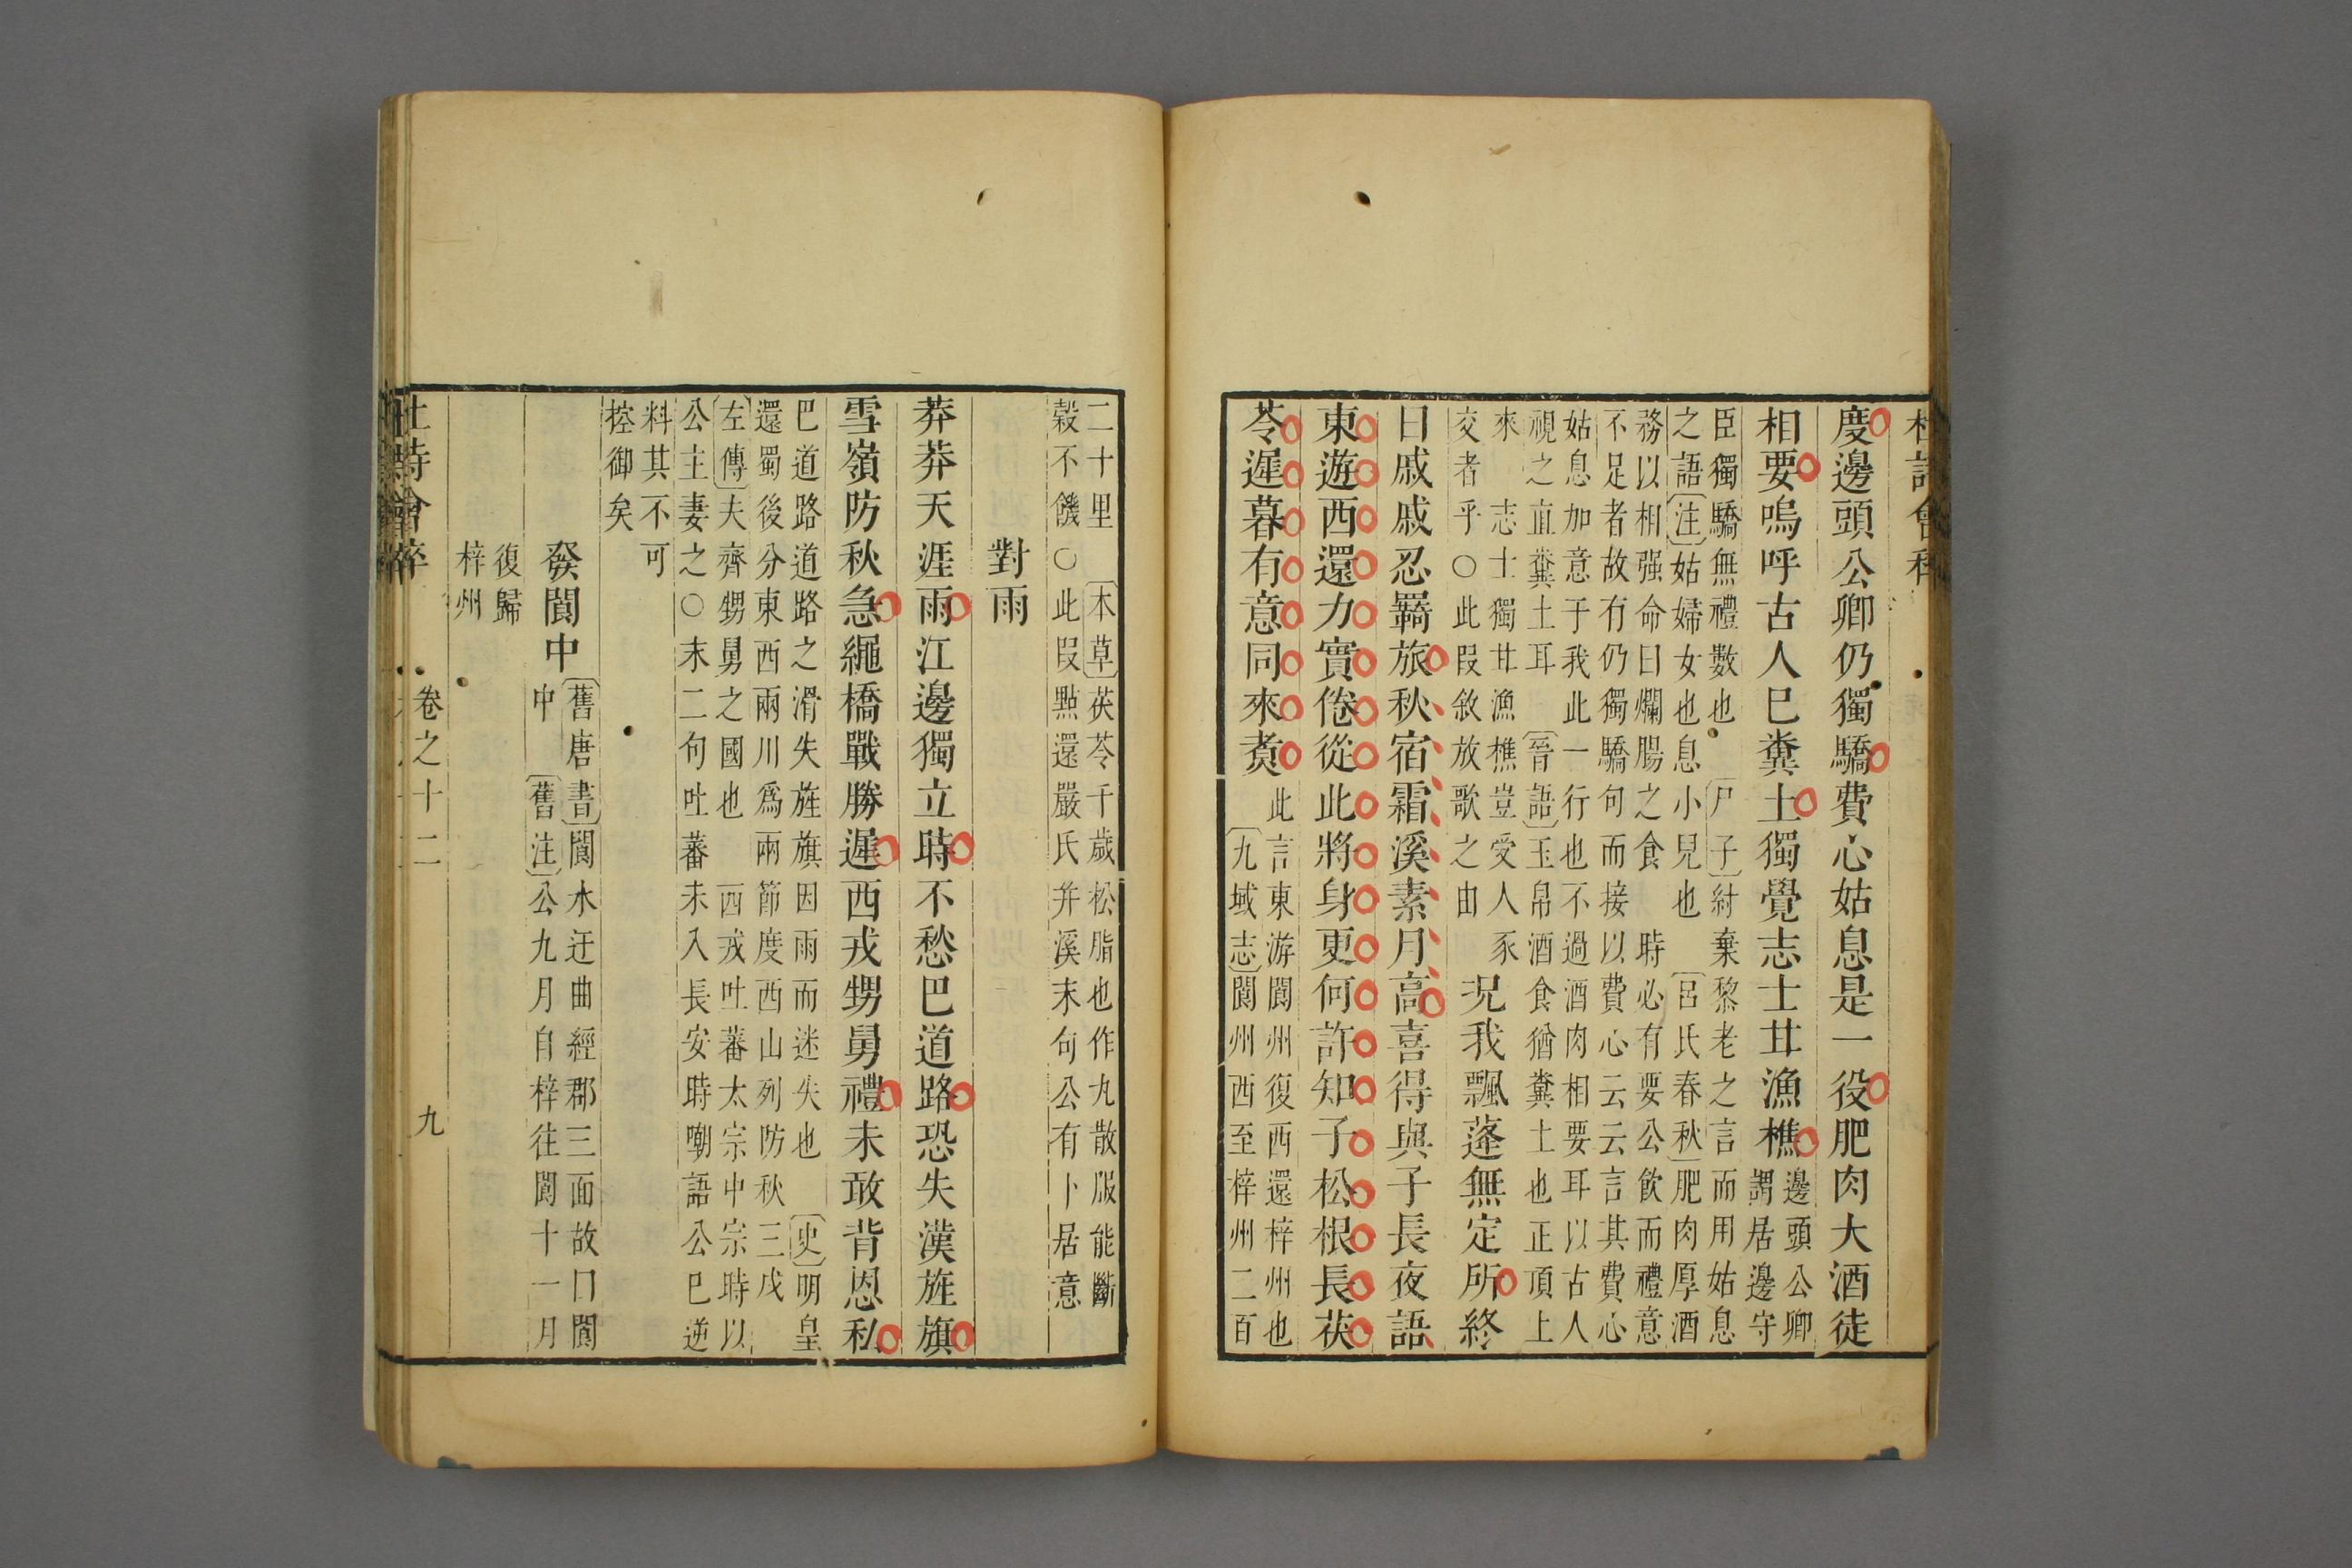 杜詩會稡
度邊頭公卿仍獨驕費心姑息是一役肥肉大酒徒
相要嗚呼古人已糞土獨覺志士甘漁樵邊頭公卿
謂居邊守
臣獨驕無禮數也〔尸子〕紂棄黎老之言而用姑息
之語〔注〕姑婦女也息小兒也〔呂氏春秋〕肥肉厚酒
務以相强命曰爛腸之食時必有要公飲而禮意
不足者故有仍獨驕句而接以費心云云言其費心
姑息加意于我此一行也不過酒肉相要耳以古人
視之直糞土耳〔晉語〕玉帛酒食猶糞土也正頂上
來志士獨甘漁樵豈受人豕
交者乎○此叚敘放歌之由
况我飄蓬無定所終
日戚戚忍羈旅秋宿霜溪素月高喜得與子長夜語
東遊西還力實倦從此將身更何許知子松根長茯
苓遲暮有意同來煑
此言東游閬州復西還梓州也
〔九域志〕閬州西至梓州二百
二十里〔本草〕茯苓千歲松脂也作丸散服能斷
穀不饑○此叚點還嚴氏并溪末句公有卜居意
對雨
莽莽天涯雨江邊獨立時不愁巴道路恐失漢旌旗
雪嶺防秋急繩橋戰勝遲西戎甥舅禮未敢背恩私
巴道路道路之滑失旌旗因雨而迷失也〔史〕明皇
還蜀後分東西兩川爲兩節度西山列防秋三戍
〔左傳〕夫齊甥舅之國也西戎吐蕃太宗中宗時以
公主妻之○末二句吐蕃未入長安時嘲語公已逆
料其不可
控御矣
發閬中
〔舊唐書〕閬水迂曲經郡三面故曰閬
中〔舊注〕公九月自梓往閬十一月
復歸
梓州
杜詩會稡
卷之十二
九